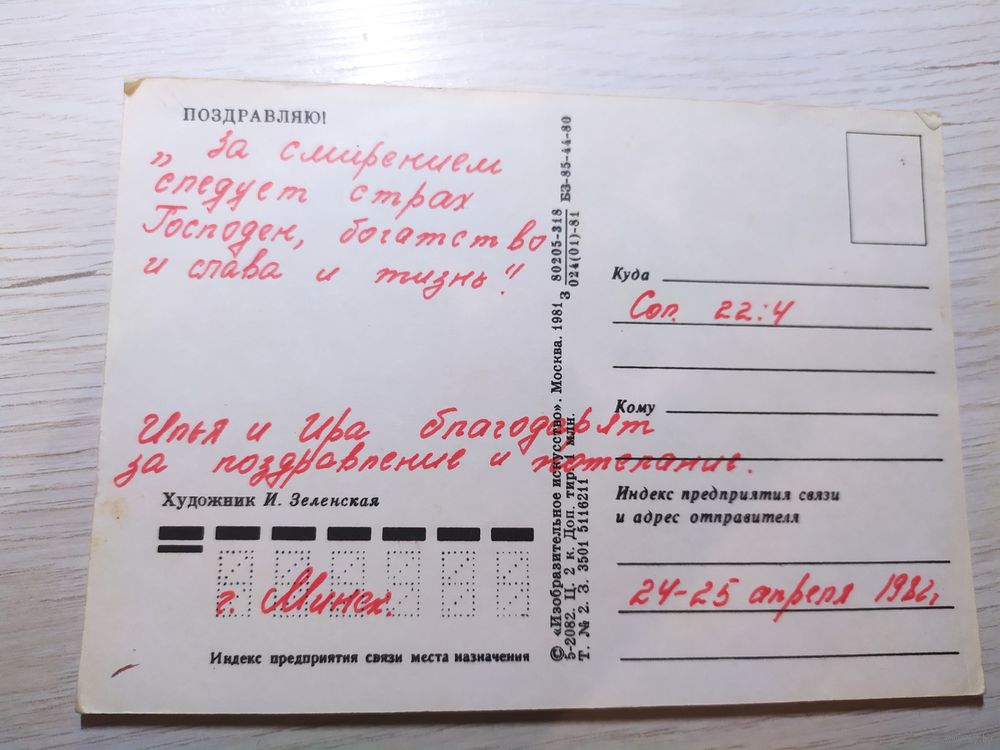 ПОЗДРАВЛЯЮ!
„ За смирением
следует страх
Господен, богатство
и слава и жизнь!"
Илья и Ира благодарят
за поздравление и пожелание.
Художник И. Зеленская
г. Минск.
Индекс предприятия связи места назначения
© «Изобразительное искусство». Москва. 1981 З 80205-318 БЗ-85-44-80
024(01)-81
5-2082. Ц. 2 к. Доп. тир. 1 млн.
Т. № 2. З. 3501 5116211
Куда
Сол. 22:4
Кому
Индекс предприятия связи
и адрес отправителя
24-25 апреля 1982г.